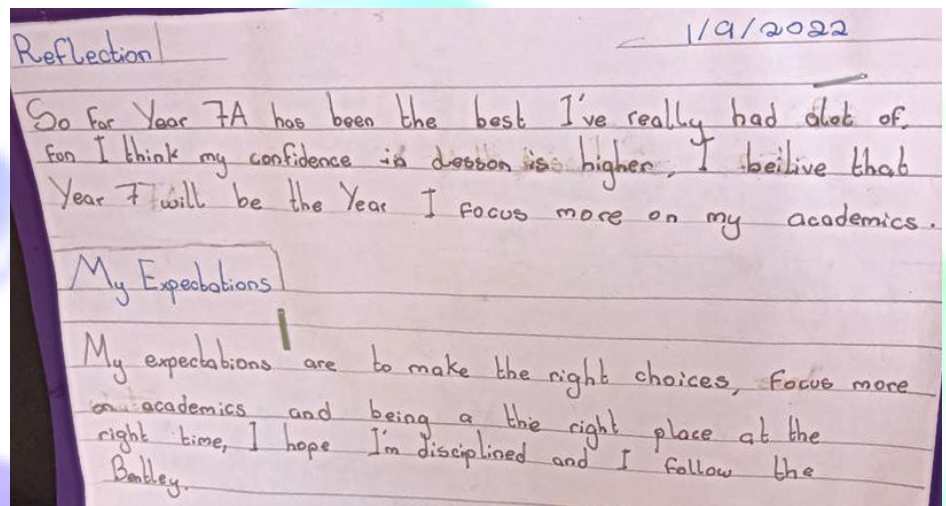 1/9/2022
Reflection
So far Year 7A has been the best I've really had alot of
fun I think my confidence in lesson is higher, I beilive that
Year 7 will be the Year I focus more on my academics.
My Expectations
My expectations are to make the right choices, focus more
on academics and being a the right place at the
right time, I hope I'm disciplined and I follow the
Bentley.